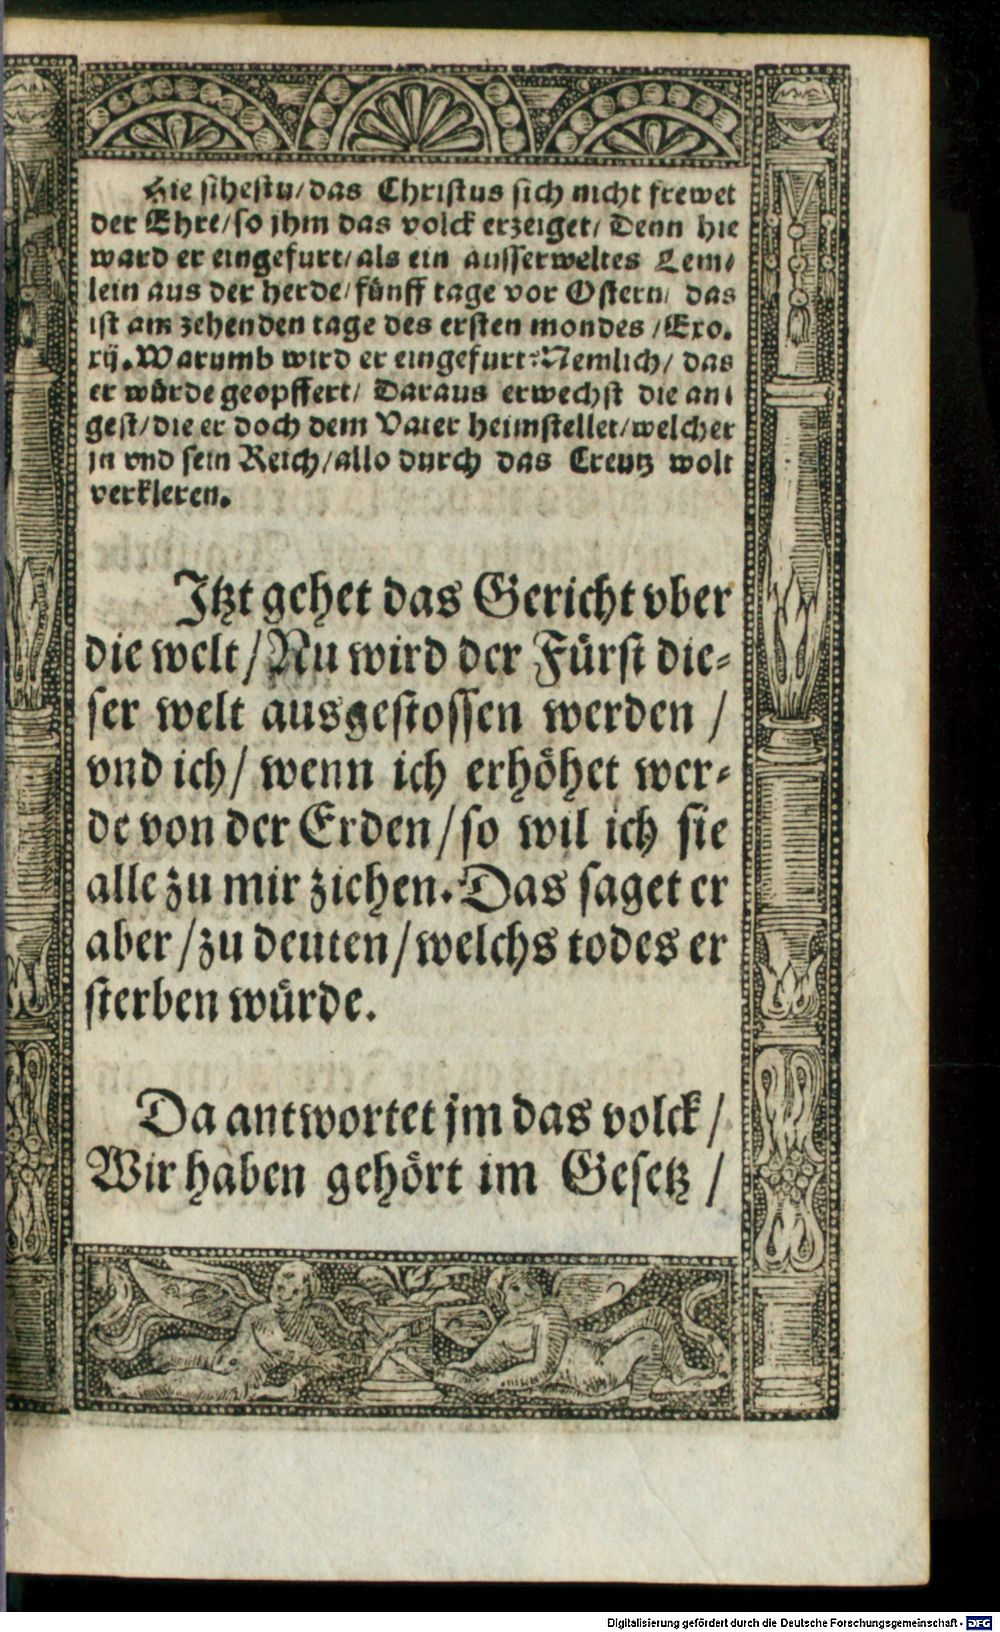 Hie sihestu/das Christus sich nicht frewet
der Ehre/so jhm das volck erzeiget/Denn hie
ward er eingefurt/als ein ausserweltes Lem⸗
lein aus der herde/fünff tage vor Ostern/ das
ist am zehenden tage des ersten mondes/Exo.
xij. Warumb wird er eingefurt? Nemlich/ das
er würde geopffert/ Daraus erwechst die an⸗
gest/die er doch dem Vater heimstellet/welcher
jn vnd sein Reich/also durch das Creutz wolt
verkleren.
Jtzt gehet das Gericht vber
die welt/Nu wird der Fürst die⸗
ser welt ausgestossen werden/
vnd ich/ wenn ich erhöhet wer⸗
de von der Erden/so wil ich sie
alle zu mir ziehen. Das saget er
aber/zu deuten/welchs todes er
sterben würde.
Da antwortet jm das volck/
Wir haben gehört im Gesetz/
Digitalisierung gefördert durch die Deutsche Forschungsgemeinschaft - DFG